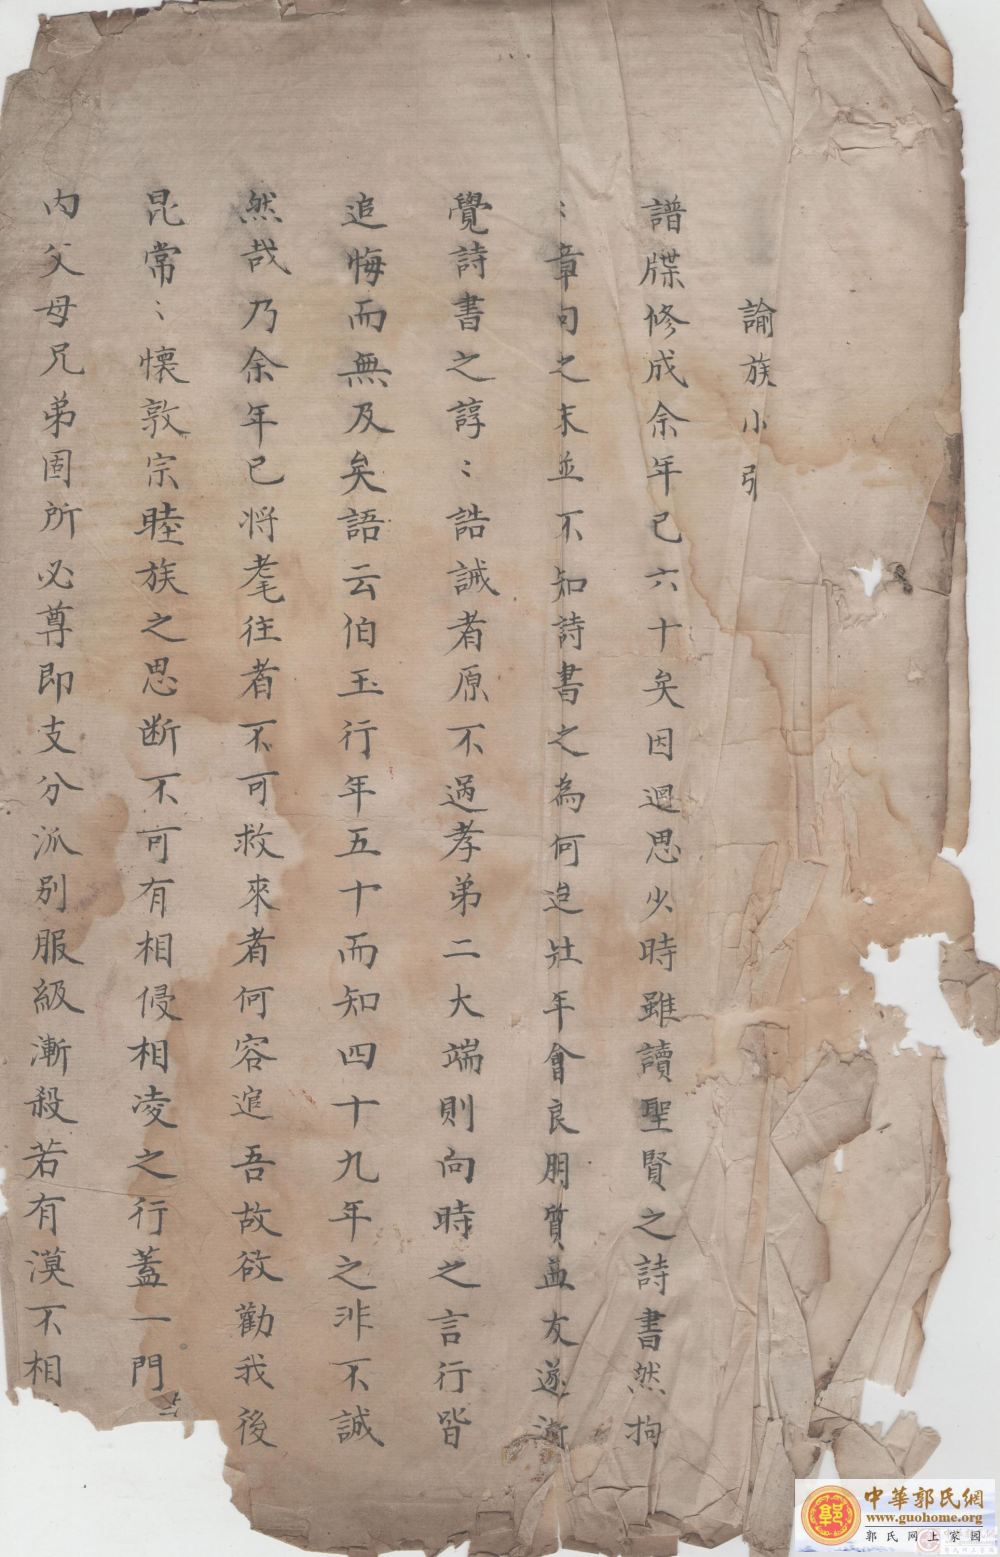 諭族小引
譜牒修成余年已六十矣因迴思少時雖讀聖賢之詩書然拘
：章句之末並不知詩書之為何迨壯年會良朋質益友遂漸
覺詩書之諄：誥誡者原不過孝弟二大端則向時之言行皆
追悔而無及矣語云伯玉行年五十而知四十九年之非不誠
然哉乃余年已將耄往者不可救來者何容追吾故欲勸我後
昆常：懷敦宗睦族之思断不可有相侵相凌之行蓋一門
內父母兄弟固所必尊即支分派别服級漸殺若有漠不相
中華郭氏網
www.guohome.org
郭氏网上家园